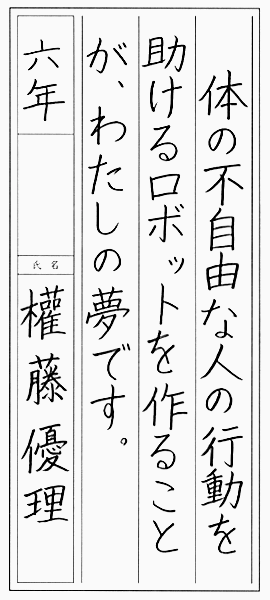 体の不自由な人の行動を
助けるロボットを作ること
が、わたしの夢です。
六年
氏名
權藤優理